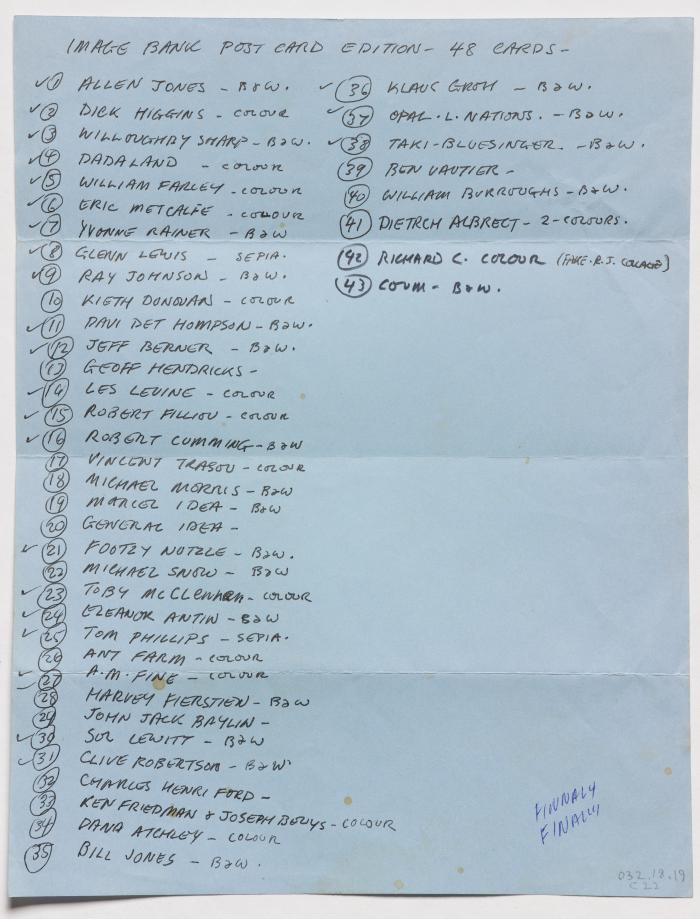 IMAGE BANK POST CARD EDITION - 48 CARDS -
✓ 1 ALLEN JONES - B&W.
✓ 2 DICK HIGGINS - COLOUR
✓ 3 WILLOUGHBY SHARP - B&W.
✓ 4 DADALAND - COLOUR
✓ 5 WILLIAM FARLEY - COLOUR
✓ 6 ERIC METCALFE - COLOUR
✓ 7 YVONNE RAINER - B&W
✓ 8 GLENN LEWIS - SEPIA.
✓ 9 RAY JOHNSON - B&W.
10 KIETH DONOVAN - COLOUR
✓ 11 DAVI DET HOMPSON - B&W.
✓ 12 JEFF BERNER - B&W.
13 GEOFF HENDRICKS -
✓ 14 LES LEVINE - COLOUR
✓ 15 ROBERT FILLIOU - COLOUR
✓ 16 ROBERT CUMMING - B&W
17 VINCENT TRASOV - COLOUR
18 MICHAEL MORRIS - B&W
19 MARCEL IDEA - B&W
20 GENERAL IDEA -
✓ 21 FOOTZY NOTZLE - B&W.
22 MICHAEL SNOW - B&W
✓ 23 TOBY McCLENNAN - COLOUR
✓ 24 ELEANOR ANTIN - B&W
✓ 25 TOM PHILLIPS - SEPIA.
26 ANT FARM - COLOUR
✓ 27 A.M. FINE - COLOUR
28 HARVEY FIERSTIEN - B&W
29 JOHN JACK BAYLIN -
✓ 30 SOL LEWITT - B&W
✓ 31 CLIVE ROBERTSON - B&W
32 CHARLES HENRI FORD -
33 KEN FRIEDMAN & JOSEPH BEUYS - COLOUR
34 DANA ATCHLEY - COLOUR
35 BILL JONES - B&W.
✓ 36 KLAUS GROH - B&W.
✓ 37 OPAL.L.NATIONS. - B&W.
✓ 38 TAKI-BLUESINGER. - B&W.
39 BEN VAUTIER -
40 WILLIAM BURROUGHS - B&W.
41 DIETRCH ALBRECT - 2-COLOURS.
42 RICHARD C. COLOUR (FAKE.R.J. COLLAGE)
43 COUM - B&W.
FINNALY
FINALLY
032.18.19
C22